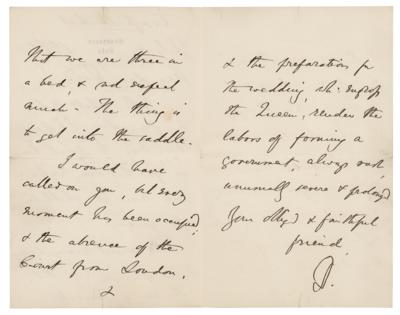 that we are three in
a bed, & not expect
much - The thing is
to get into the saddle.
I would have
called on you, but every
moment has been occupied,
& the absence of the
Court from London,
2
& the preparations for
the wedding, wh: engross
the Queen, render the
labors of forming a
government, always
unusually severe & prolonged
Your obliged & faithful
friend,
D.